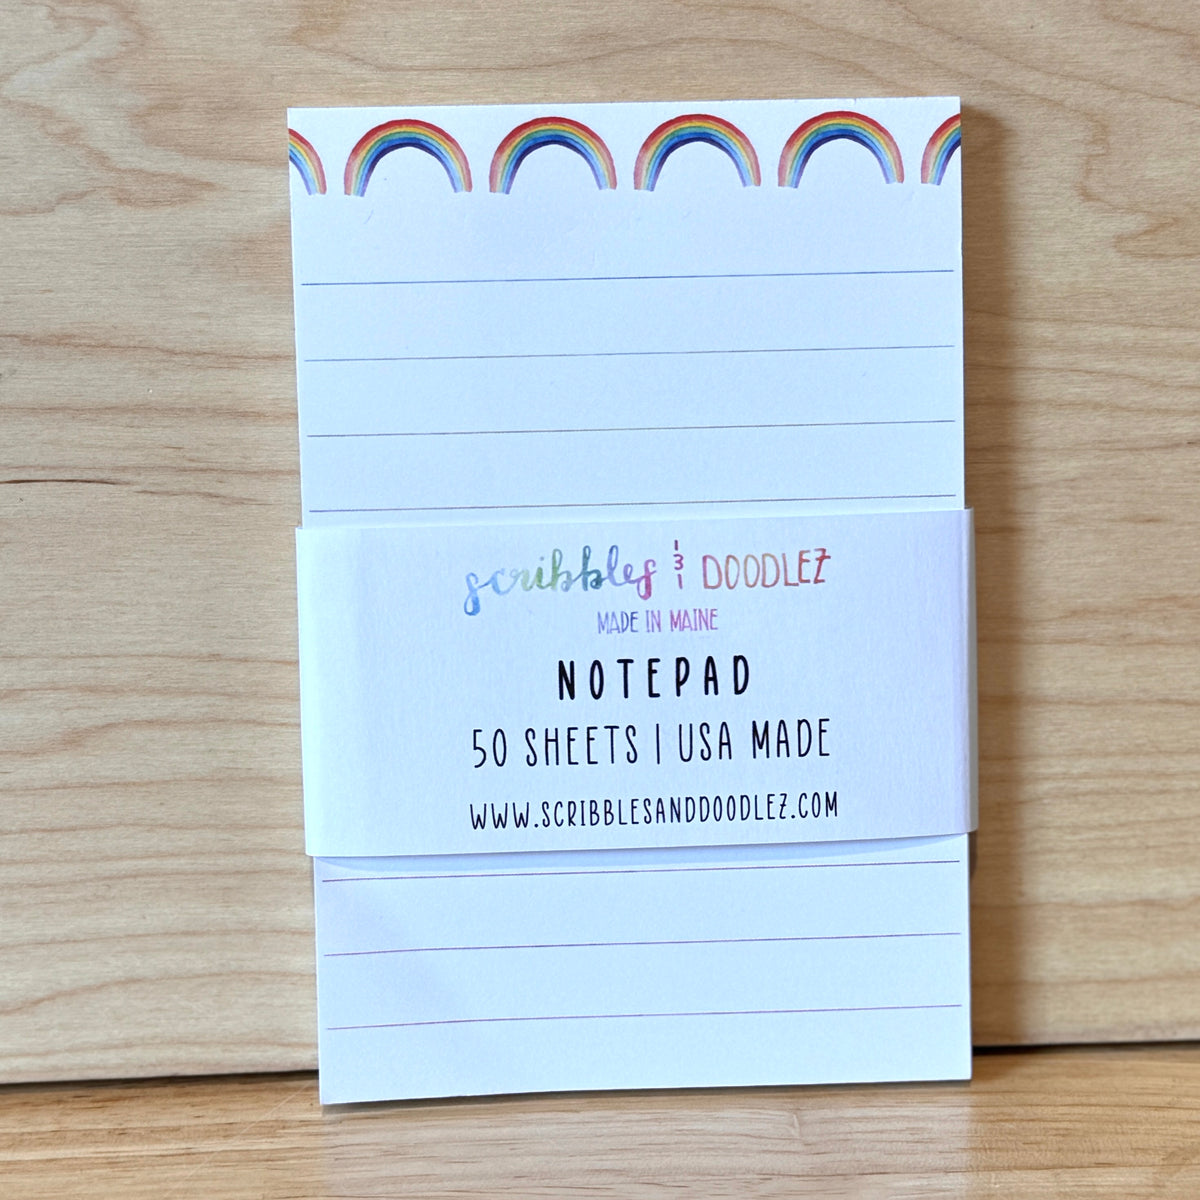 scribbles & DOODLEZ
MADE IN MAINE
NOTEPAD
50 SHEETS | USA MADE
WWW.SCRIBBLESANDDOODLEZ.COM